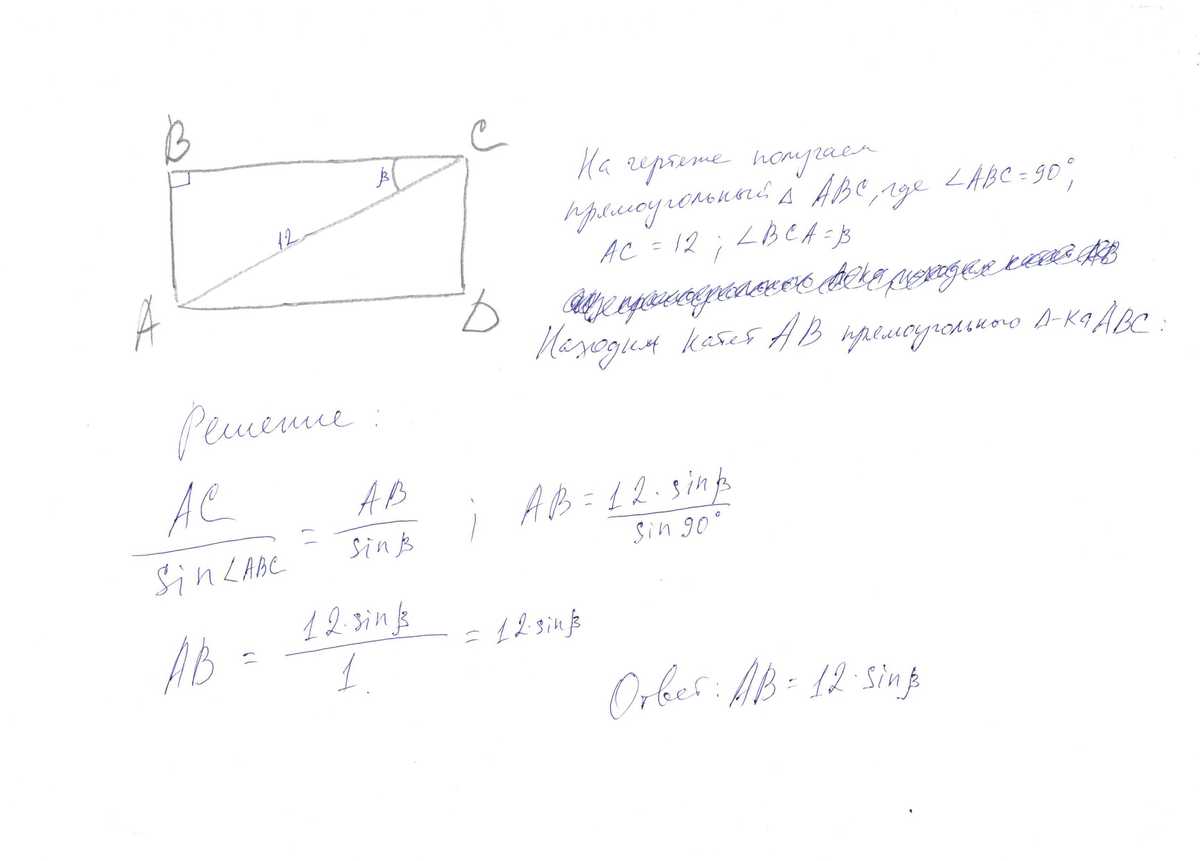 B
C
β
12
A
D
На чертеже получаем
прямоугольный Δ ABC, где ∠ABC = 90°;
AC = 12 ; ∠BCA = β
Находим катет AB прямоугольного Δ-ка ABC:
Решение:
AC / sin∠ABC = AB / sinβ ; AB = 12 · sinβ / sin 90°
AB = 12·sinβ / 1 = 12·sinβ
Ответ: AB = 12·sinβ